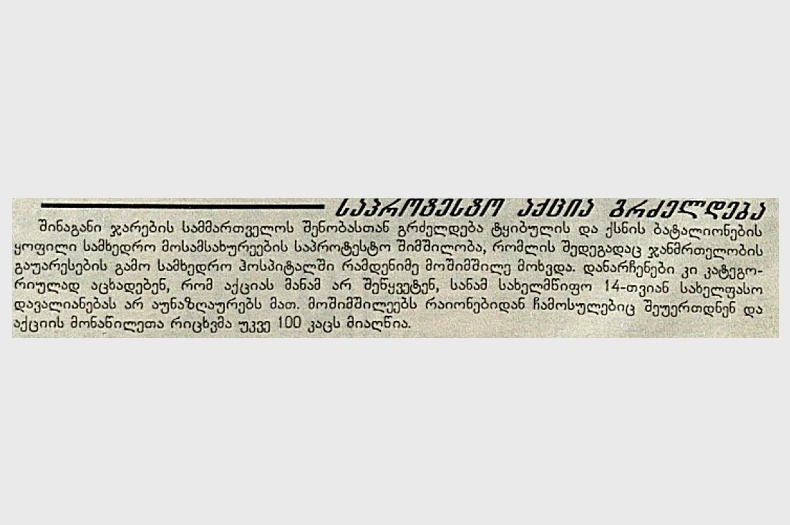 საპროტესტო აქცია გრძელდება
შინაგანი ჯარების სამმართველოს შენობასთან გრძელდება ტყიბულის და ქსნის ბატალიონების
ყოფილი სამხედრო მოსამსახურეების საპროტესტო შიმშილობა, რომლის შედეგადაც ჯანმრთელობის
გაუარესების გამო სამხედრო ჰოსპიტალში რამდენიმე მოშიმშილე მოხვდა. დანარჩენები კი კატეგო-
რიულად აცხადებენ, რომ აქციას მანამ არ შეწყვეტენ, სანამ სახელმწიფო 14-თვიან სახელფასო
დავალიანებას არ აუნაზღაურებს მათ. მოშიმშილეებს რაიონებიდან ჩამოსულებიც შეუერთდნენ და
აქციის მონაწილეთა რიცხვმა უკვე 100 კაცს მიაღწია.